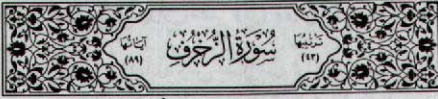 ترتيبها (٤٣) سُورَةُ الزُّخْرُفِ آياتها (٨٩)